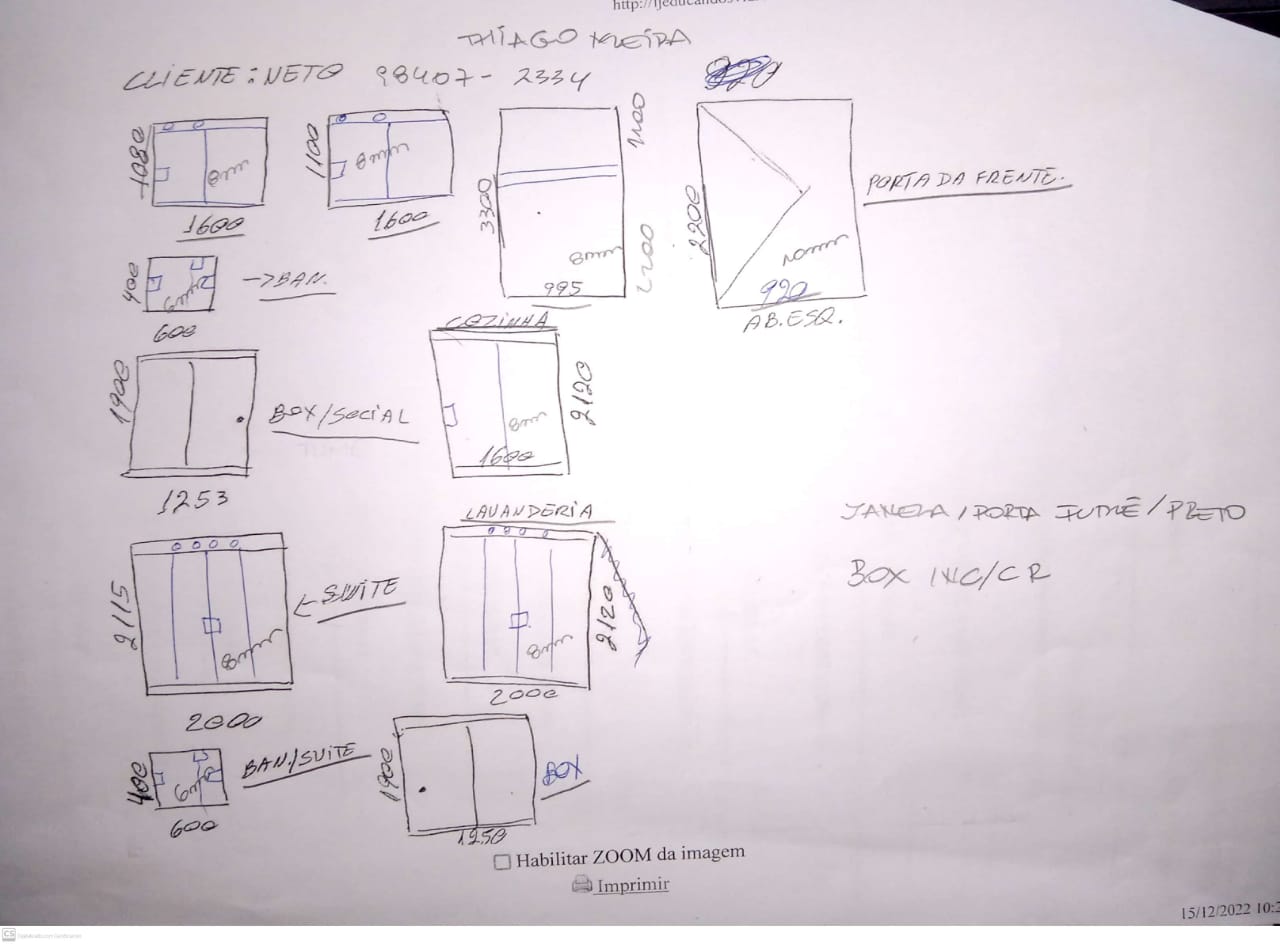 THIAGO
CLIENTE: NETO 98407-2334
1080
8mm
1600
1100
8mm
1600
3300
1100
2200
8mm
995
2200
10mm
920
PORTA DA FRENTE.
AB. ESQ.
400
6mm
600
->BAN.
1900
1253
BOX/SOCIAL
COZINHA
8mm
1600
2120
2115
8mm
2000
<- SUITE
LAVANDERIA
8mm
2120
2000
JANELA/PORTA FUMÊ/PRETO
BOX INC/CR
400
6mm
600
BAN./SUITE
1900
1250
BOX
Habilitar ZOOM da imagem
Imprimir
15/12/2022 10:2
CS